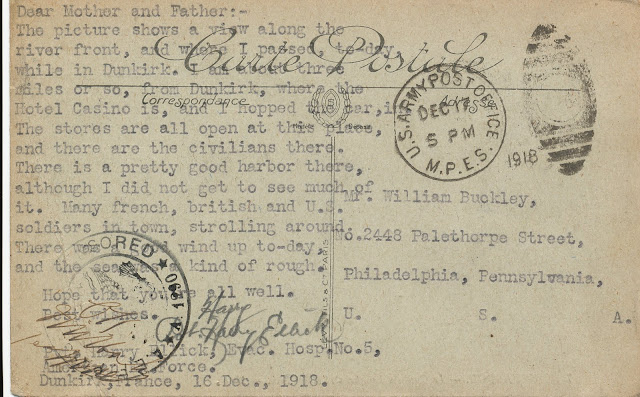 Dear Mother and Father:-
The picture shows a view along the
river front, and where I passed, to-day,
while in Dunkirk. I am about three
miles or so, from Dunkirk, where the
Hotel Casino is, and I hopped the car, in
The stores are all open at this place,
and there are the civilians there.
There is a pretty good harbor there,
although I did not get to see much of
it. Many french, british and U.S.
soldiers in town, strolling around.
There was a good wind up to-day,
and the sea was kind of rough.
Hope that you're all well.
Best wishes.
Harry
Harry
Evac. Hosp. No. 5,
American Force.
Dunkirk, France, 16. Dec., 1918.
Carte Postale
Correspondance
U.S. ARMY POST OFFICE
DEC 17
5 PM
M.P.E.S.
1918
Mr. William Buckley,
No. 2448 Palethorpe Street,
Philadelphia, Pennsylvania,
U. S. A.
PARIS